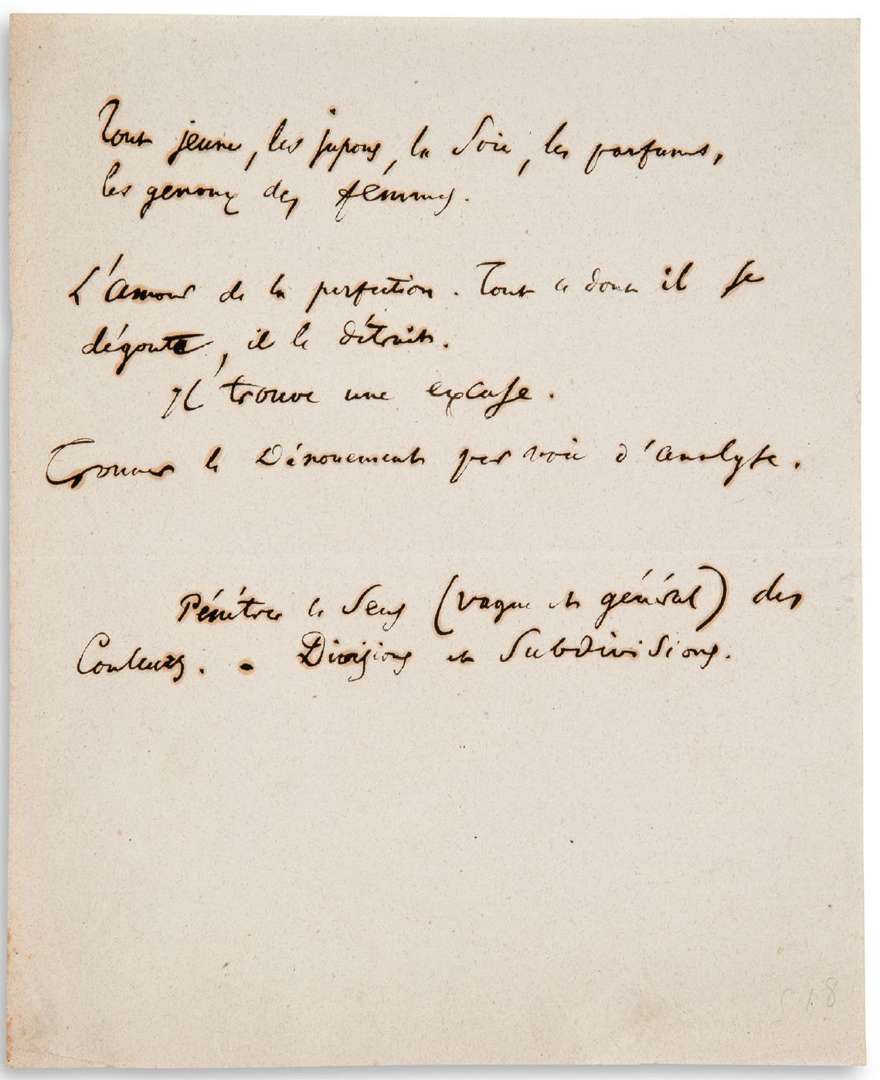 Tout jeune, les jupons, la Soie, les parfums,
les genoux des femmes.
L'amour de la perfection. Tout ce dont il se
dégoute, il le détruit.
Il trouve une excuse.
Trouver le Dénouement par voie d'analyse.
Pénétrer le Sens (vague et général) des
Couleurs. - Divisions et Subdivisions.
518